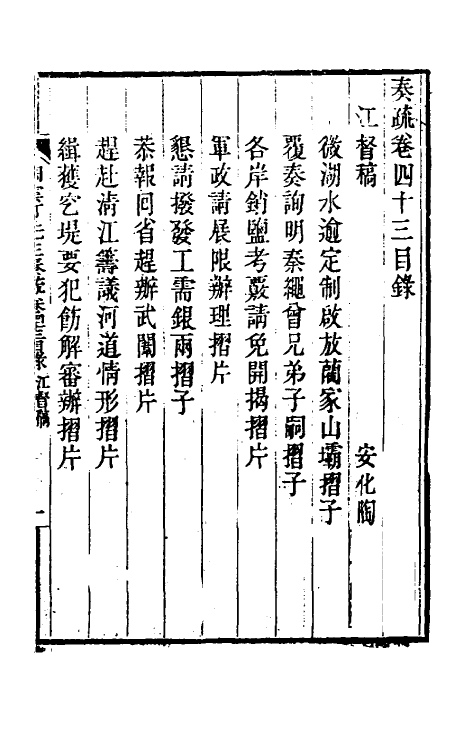 奏疏卷四十三目錄
江督稿　安化陶
微湖水逾定制啟放藺家山壩摺子
覆奏詢明秦繩曾兄弟子嗣摺子
各岸銷鹽考覈請免開揭摺片
軍政請展限辦理摺片
懇請撥發工需銀兩摺子
恭報回省趕辦武闈摺片
趕赴清江籌議河道情形摺片
緝獲穵堤要犯飭解審辦摺片
江督稿 一